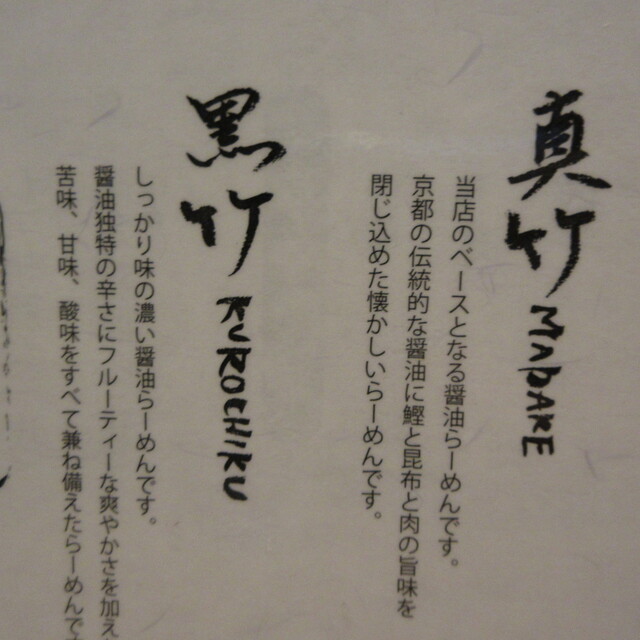 真竹 MADAKE
当店のベースとなる醤油らーめんです。
京都の伝統的な醤油に鰹と昆布と肉の旨味を
閉じ込めた懐かしいらーめんです。
黒竹 KUROCHIKU
しっかり味の濃い醤油らーめんです。
醤油独特の辛さにフルーティーな爽やかさを加え
苦味、甘味、酸味をすべて兼ね備えたらーめんで